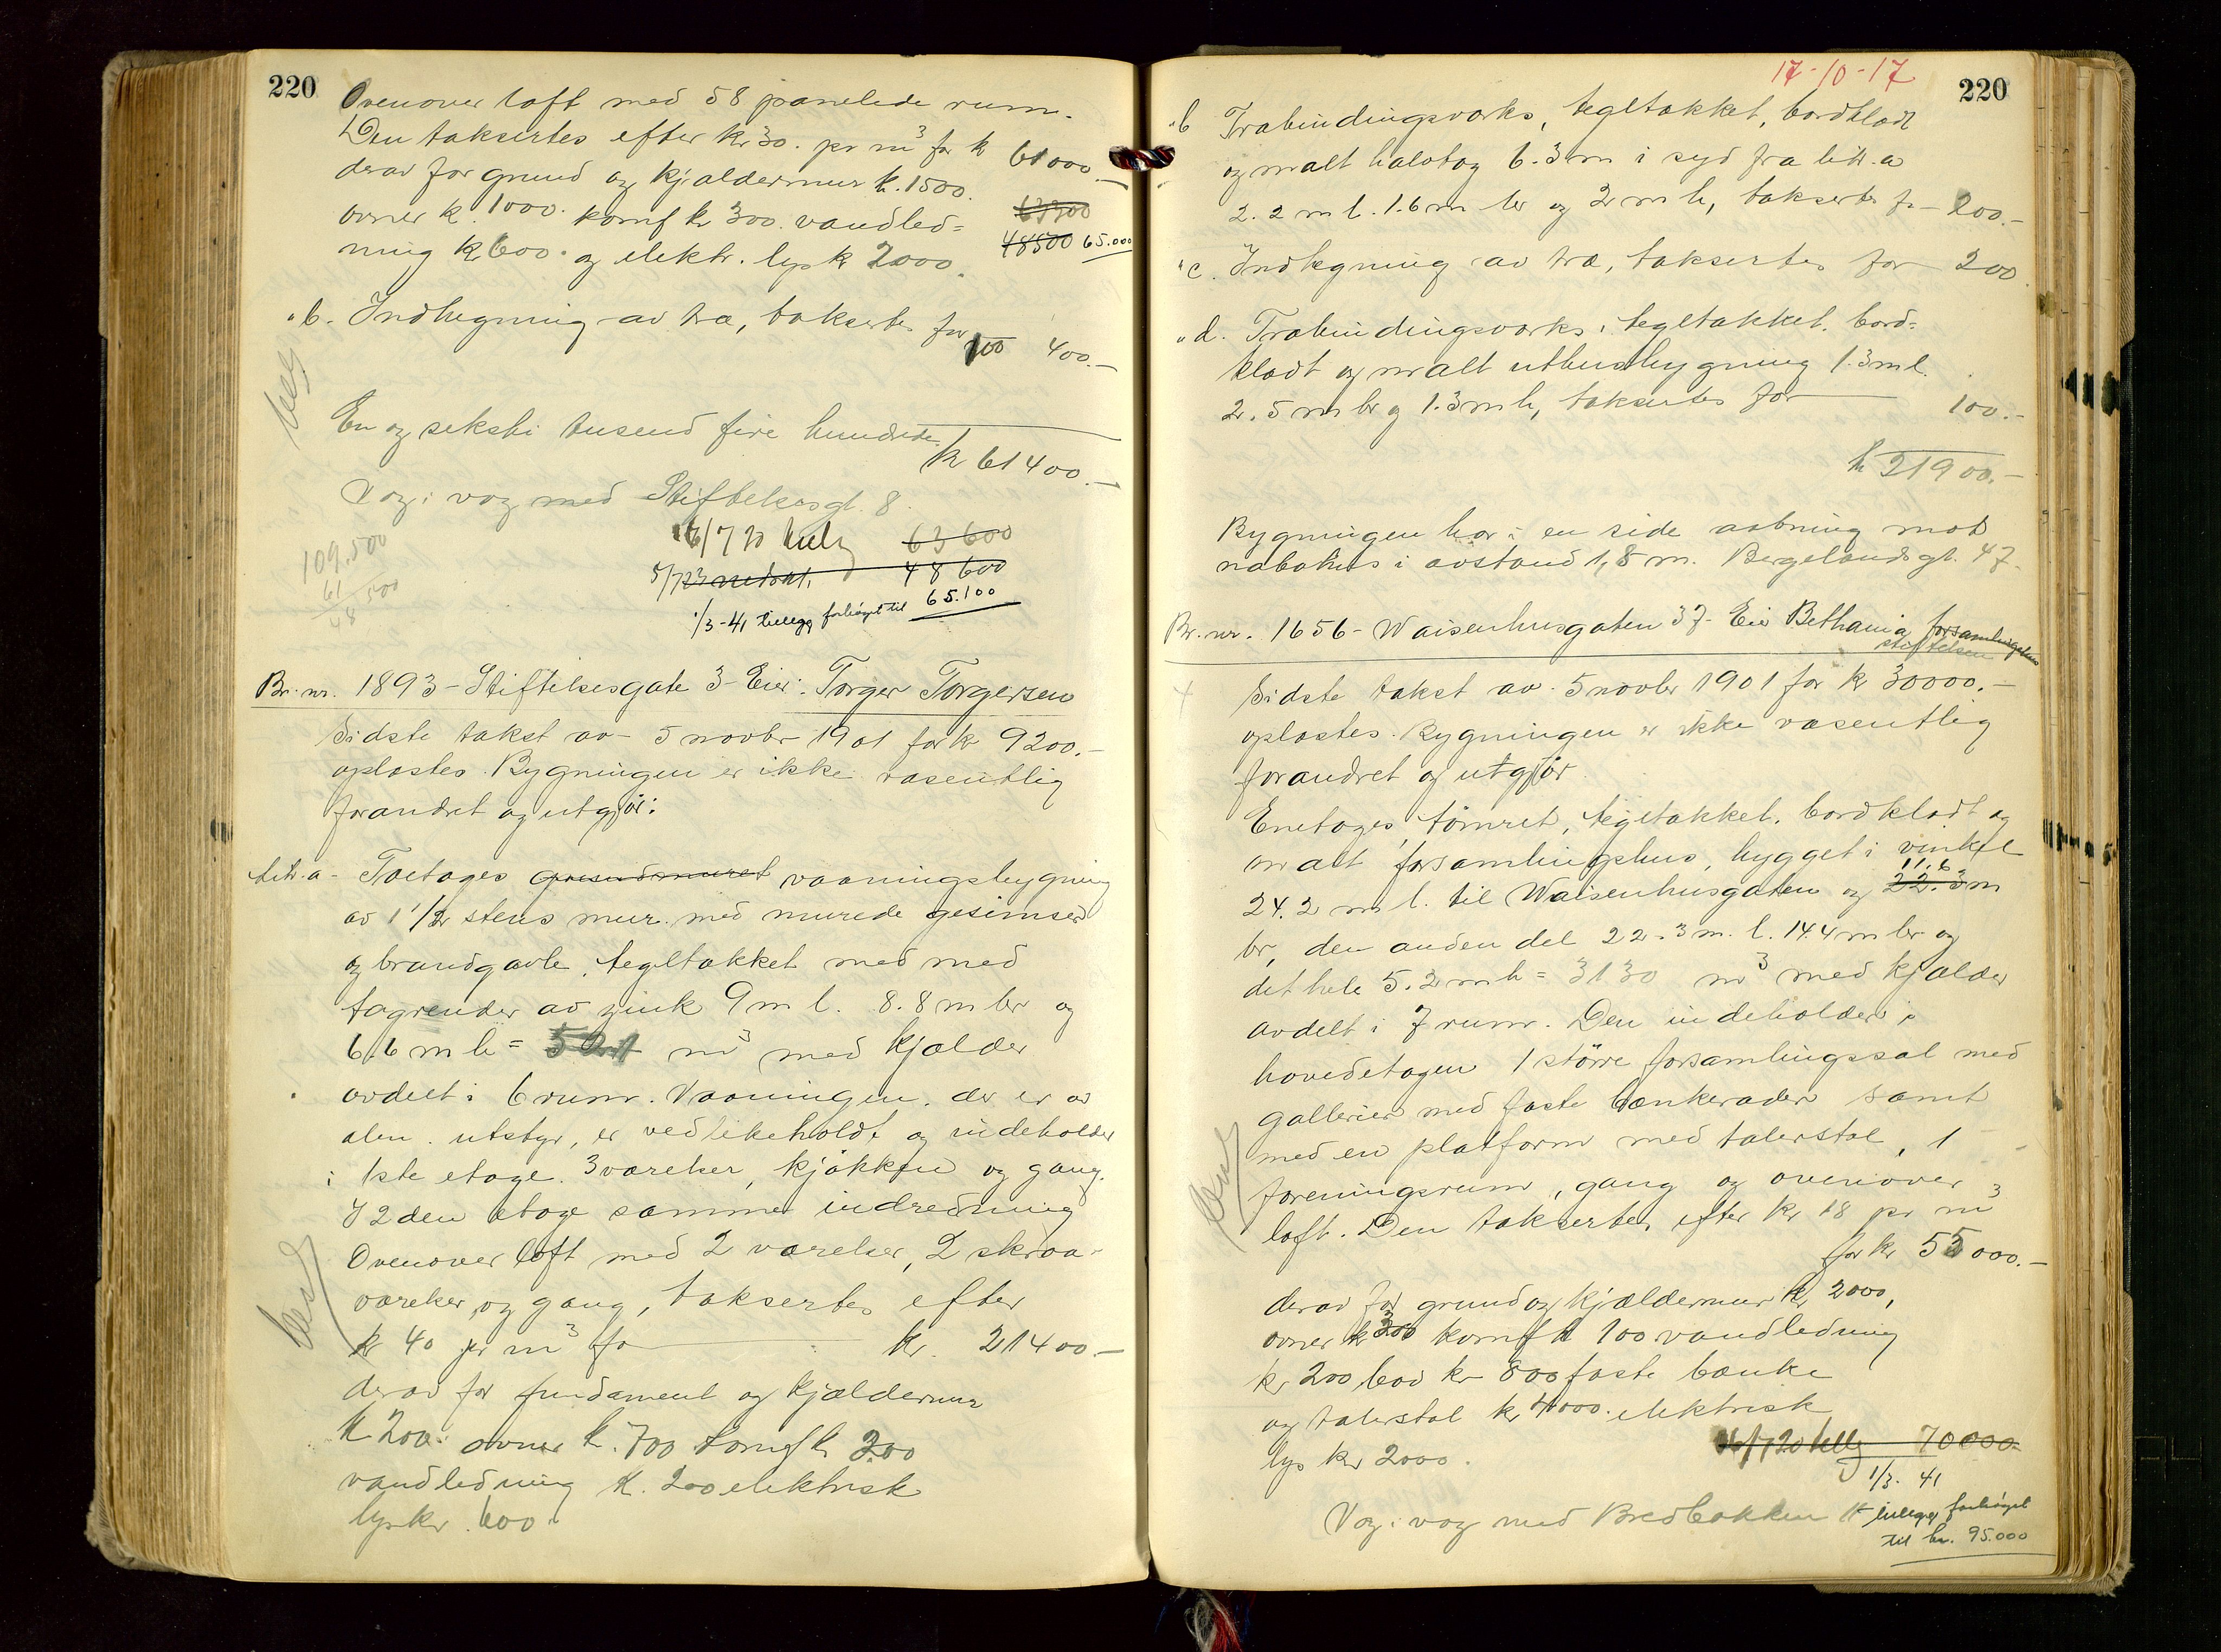 220
Ovenover loft med 58 panelede rum.
Den taksertes efter kr 30. pr m³ for kr 61000.-
derav for grund og kjældermur k. 1500.
ovner k. 1000. komf kr 300. vandled= 63200
ning kr 600. og elektr. lys k 2000. 48500 65.000
"b. Indhegning av træ, taksertes for 100 400.-
En og seksti tusend fire hundrede
kr 61400.-
Væg i væg med Stiftelsesgt. 8.
16/7 20 63600
109.500
61
48 500
5/7 23 nedsat. 48600
1/3-41 tillegg forhøyet til 65.100
Br. nr. 1893 - Stiftelsesgate 3 - Eier: Torger Torgersen
Sidste takst av 5 novbr 1901 for kr 9200.-
oplæstes. Bygningen er ikke væsentlig
forandret og utgjør:
Litr. a - Toetages vaaningsbygning
av 1 1/2 stens mur med murede gesimser
og brandgavle, tegltækket med med
tagrender av zink 9 m l. 8.8 m br og
6.6 m h = m³ med kjælder
avdelt i 6 rum. Vaaningen, der er av
alm. utstyr, er vedlikeholdt og indeholder
i 1ste etage. 3 værelser, kjøkken og gang.
I 2den etage samme indredning
Ovenover loft med 2 værelser, 2 skraa-
værelser og gang, taksertes efter
kr 40 pr m³ for kr. 21400.-
derav for fundament og kjældermur
k 200. ovner k. 700 komf k 200
vandledning k. 200 elektrisk
lys kr. 600.
17-10-17
220
"b Træbindingsværks, tegltækket, bordklædt
og malt halvtag 6.3 m i syd fra litr. a
2.2 m l. 1.6 m br og 2 m h, taksertes for - 200.-
"c. Indhegning av træ, taksertes for 200
"d. Træbindingsværks, tegltækket, bord=
klædt og malt uthusbygning 1.3 m l.
2.5 m br og 1.3 m h, taksertes for 100.-
kr 21900.-
Bygningen har i en side aabning mot
nabohus i avstand 1,8 m. Bergelandsgt. 47.
Br. nr. 1656 - Waisenhusgaten 37 - Eier Bethania forsamlingshus
stiftelsen
Sidste takst av 5 novbr 1901 for kr 30000.-
oplæstes. Bygningen er ikke væsentlig
forandret og utgjør
Enetages, tømret, tegltækket, bordklædt og
malt forsamlingshus, bygget i vinkel
11.6
24.2 m l. til Waisenhusgaten og 22.3 m
br, den anden del 22.3 m. l. 14.4 m br og
det hele 5.2 m h = 3130 m³ med kjælder
avdelt i 7 rum. Den indeholder i
hovedetagen 1 større forsamlingssal med
gallerier med faste bænkerader samt
med en platform med talerstol, 1
foreningsrum, gang og ovenover
loft. Den taksertes efter kr 18 pr m³
for kr 55000.-
derav for grund og kjældermur kr 2000,
ovner kr 300 komf k 100 vandledning
kr 200 bad kr 800 faste bænke
og talerstol kr 4000. elektrisk
lys kr 2000. 16/7 20 70000
1/3. 41
Væg i væg med Bredbakken 1 tillegg forhøyet
til kr. 95.000